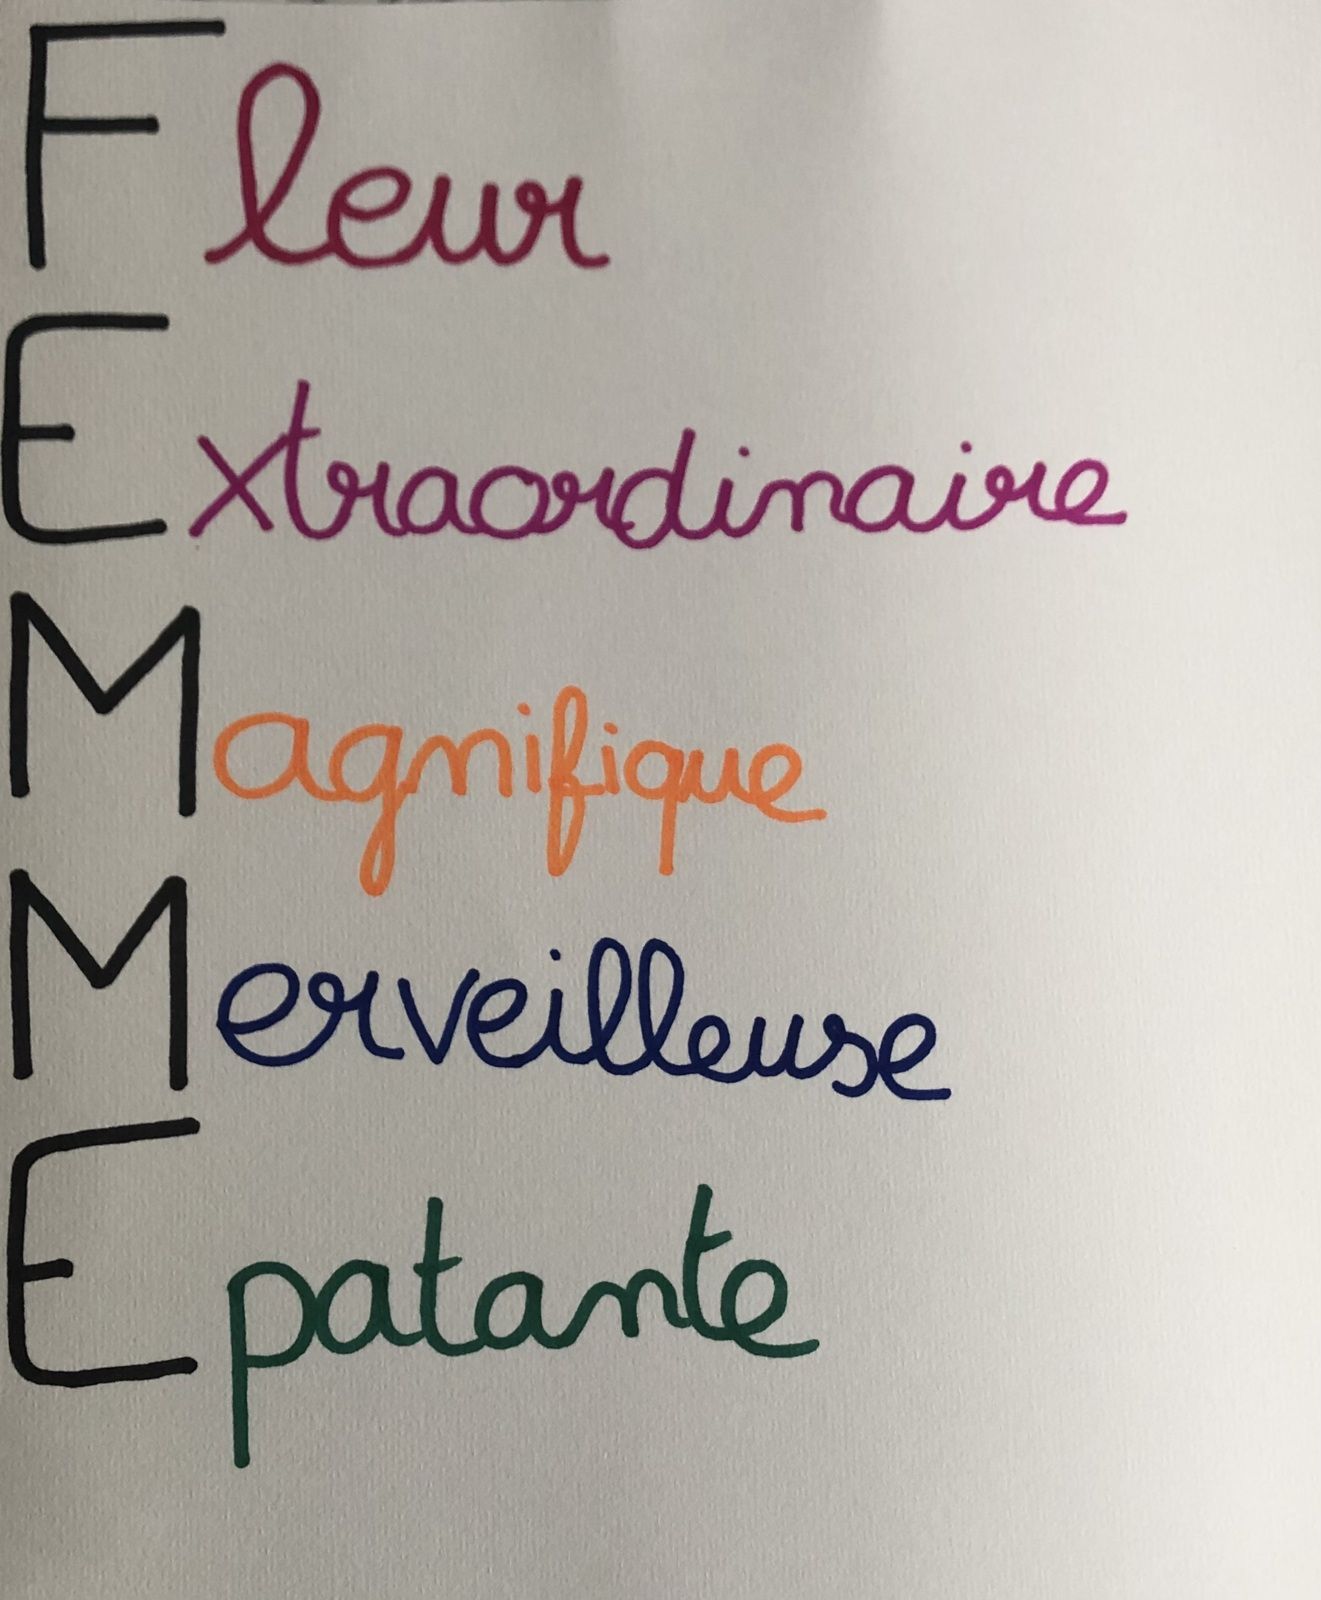 Fleur
Extraordinaire
Magnifique
Merveilleuse
Epatante